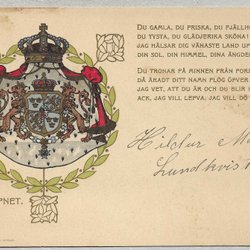 DU GAMLA, DU FRISKA, DU FJÄLL
DU TYSTA, DU GLÄDJERIKA SKÖNA!
JAG HÄLSAR DIG VÄNASTE LAND UP
DIN SOL, DIN HIMMEL, DINA ÄNGDE
DU TRONAR PÅ MINNEN FRÅN FOR
DÅ ÄRADT DITT NAMN FLÖG ÖFVER
JAG VET, ATT DU ÄR OCH DU BLIR
ACK, JAG VILL LEFVA, JAG VILL DÖ
Hildur
Lundkvist
PNET.